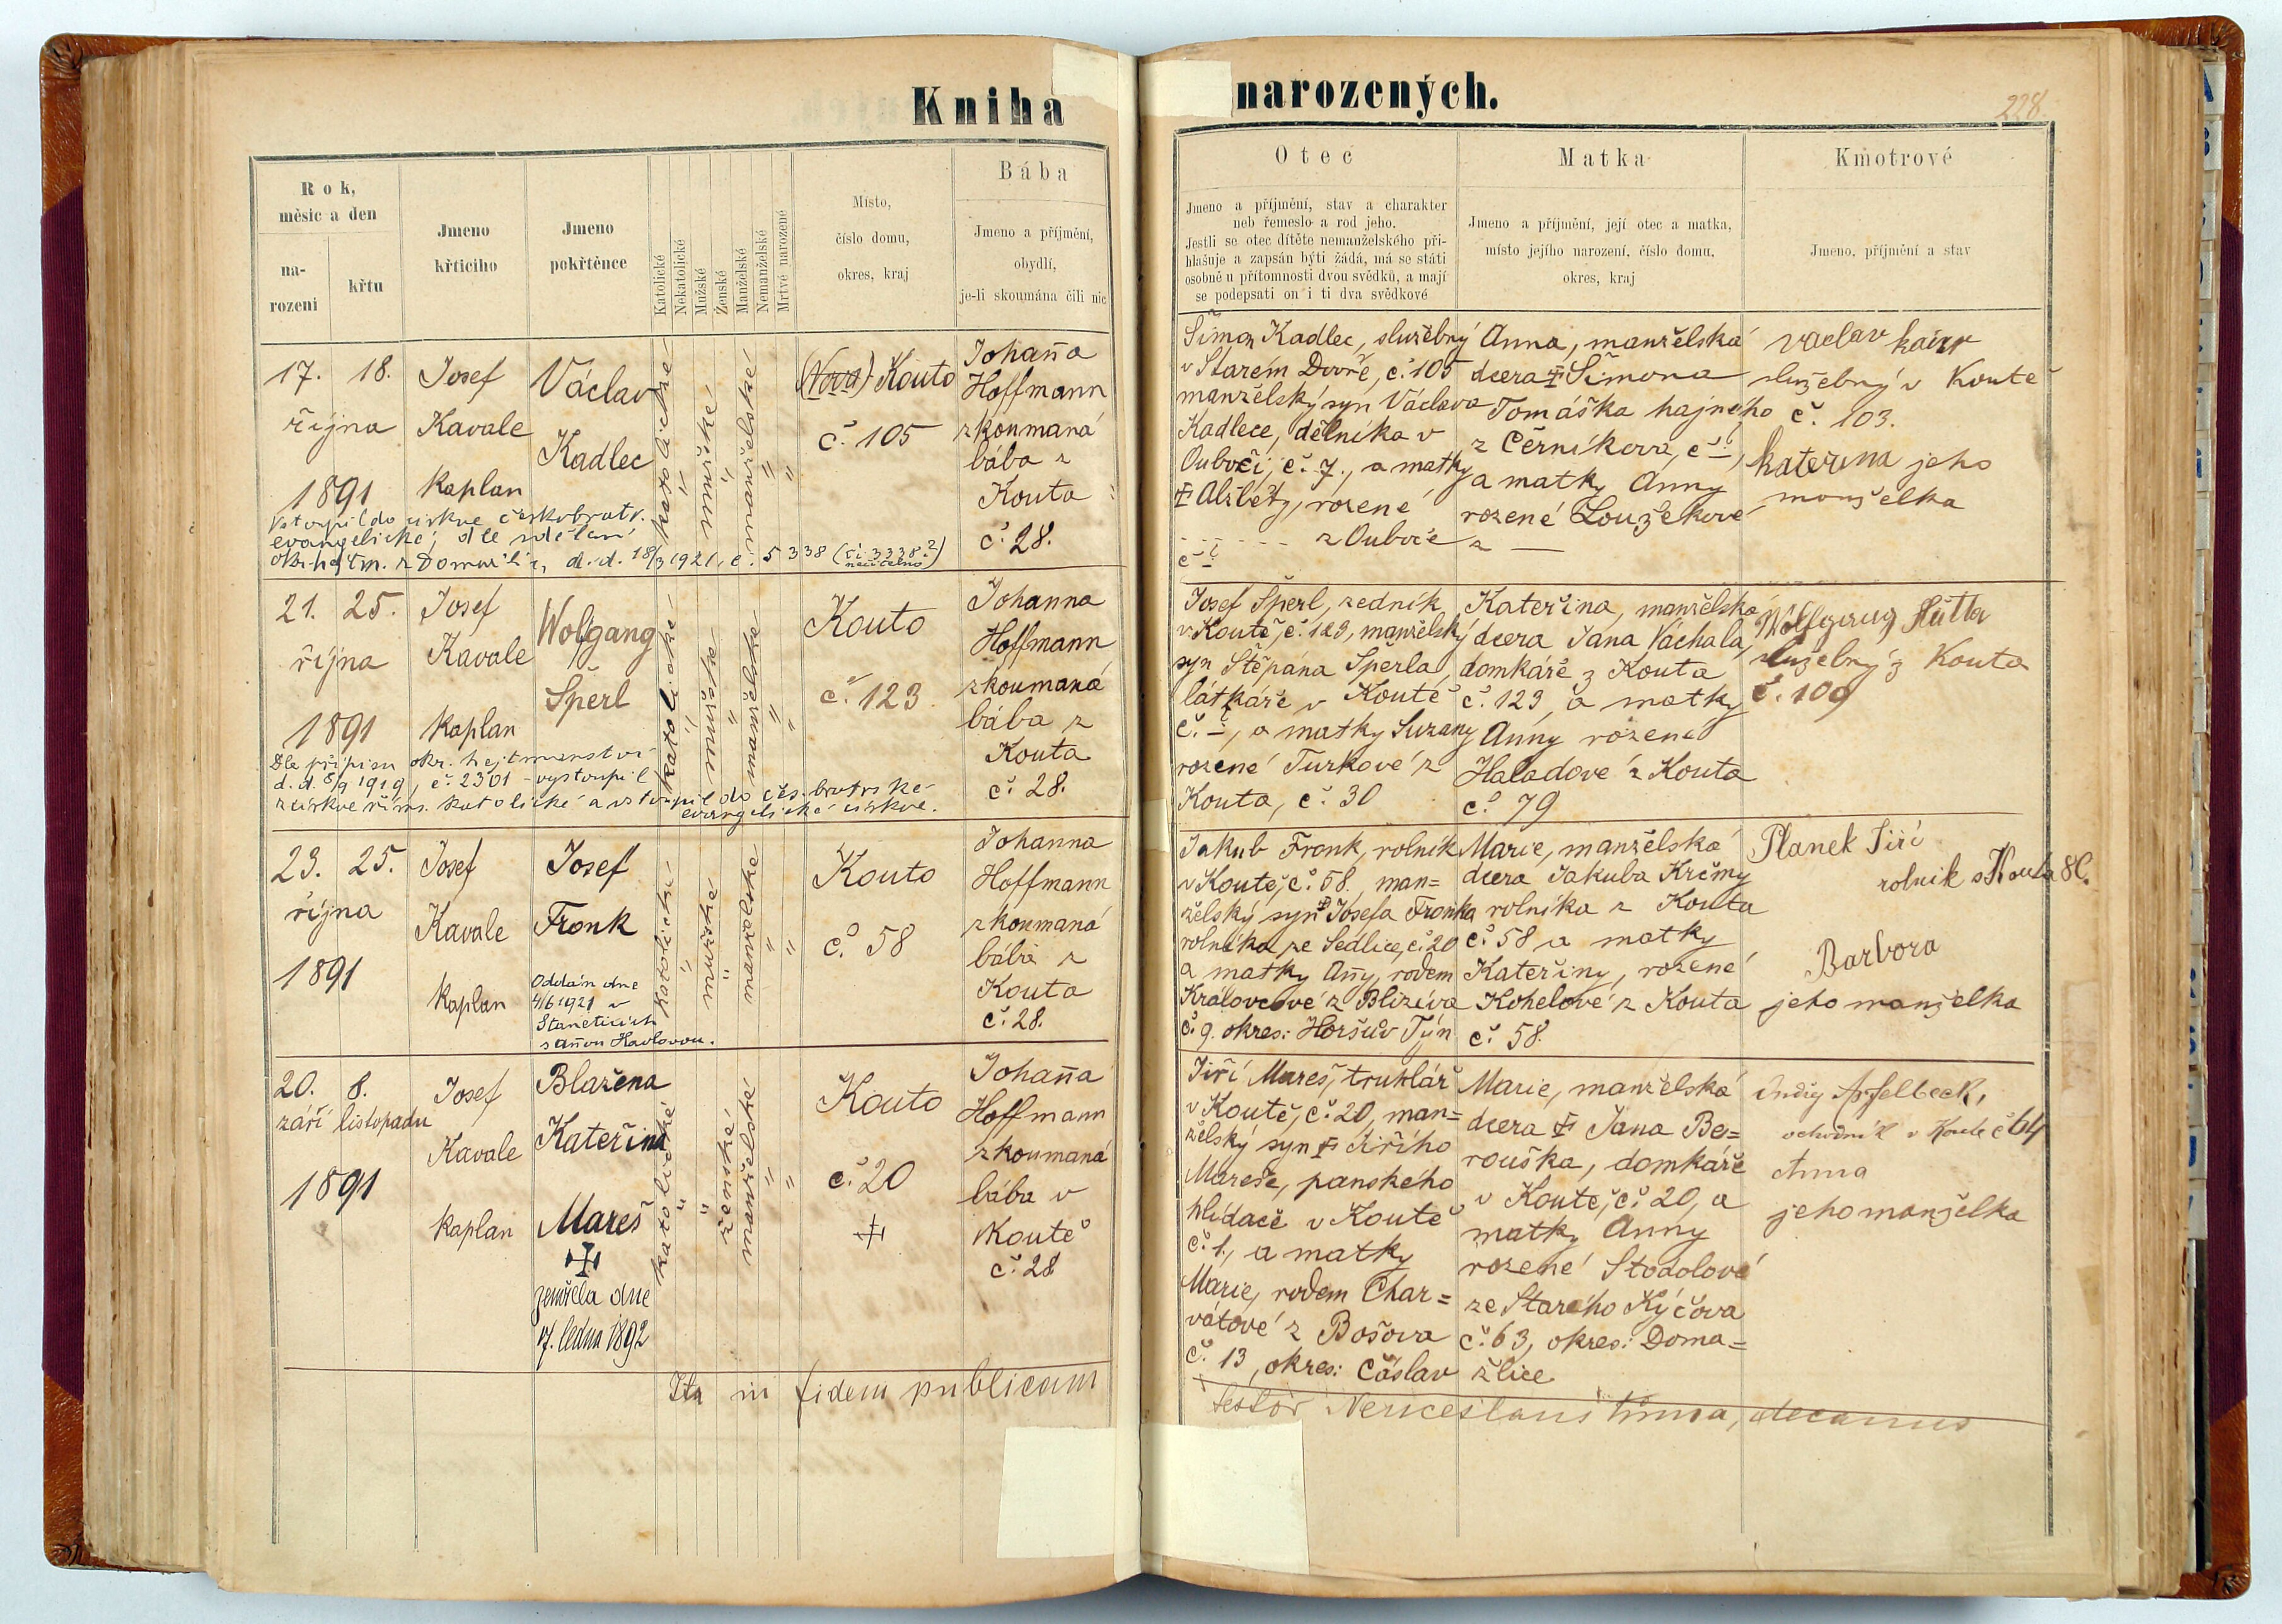 Kniha narozených.
228
Rok,
měsíc a den
na-
rozeni
křtu
Jmeno
křticiho
Jmeno
pokřtěnce
Katolické
Nekatolické
Mužské
Ženské
Manželské
Nemanželské
Mrtvé narozené
Místo,
číslo domu,
okres, kraj
Bába
Jmeno a příjmění,
obydlí,
je-li skoumána čili nic
Otec
Jmeno a příjmění, stav a charakter
neb řemeslo a rod jeho.
Jestli se otec dítěte nemanželského při-
hlašuje a zapsán býti žádá, má se státi
osobně u přítomnosti dvou svědků, a mají
se podepsati on i ti dva svědkové
Matka
Jmeno a příjmění, její otec a matka,
místo jejího narození, číslo domu,
okres, kraj
Kmotrové
Jmeno, příjmění a stav
17. 18.
října
1891
Josef
Kavale
kaplan
Václav
Kadlec
katolické
"
mužské
"
manželské
"
"
(Nova) Kouto
č. 105
Johanna
Hoffmann
zkoumaná
bába z
Kouta
č. 28.
Vstoupil do církve českobratr.
evangelické, dle sdělení
okr. hejtm. z Domažlic, d. d. 18/3 1921. č. 5338 (či 3338?
nečitelno)
Šimon Kadlec, služebný
v Starém Dvoře, č. 105
manželský syn Václava
Kadlece, dělníka v
Oubočí, č. 7., a matky
Alžběty, rozené
z Ouboče
č. ?
Anna, manželská
dcera Šimona
Tomáška hajného
z Černíkova, č. ?,
a matky Anny
rozené Loužekové
z —
Vaclav
služebný v Koutě
č. 103.
Kateřina jeho
manželka
21. 25.
října
1891
Josef
Kavale
kaplan
Wolfgang
Šperl
katolické
"
mužské
"
manželské
"
"
Kouto
č. 123
Johanna
Hoffmann
zkoumaná
bába z
Kouta
č. 28.
Dle přípisu okr. hejtmanství
d. d. 8/9 1919, č. 2301 – vystoupil
z církve řím. katolické a vstoupil do čes. bratrské
evangelické církve.
Josef Šperl, zedník
v Koutě, č. 123, manželský
syn Štěpána Šperla,
látkáře v Koutě
č. ?, a matky Suzany
rozené Turkové z
Kouta, č. 30
Kateřina, manželská
dcera Jana Váchala,
domkáře z Kouta
č. 123, a matky
Anny rozené
Haladové z Kouta
č. 79
Wolfgang Hütter
služebný z Kouta
č. 109
23. 25.
října
1891
Josef
Kavale
kaplan
Josef
Fronk
Oddán dne
4/6 1921 v
Staněticích
s Annou Havlovou.
katolické
"
mužské
"
manželské
"
"
Kouto
č. 58
Johanna
Hoffmann
zkoumaná
bába z
Kouta
č. 28.
Jakub Fronk, rolník
v Koutě, č. 58., man=
želský syn Josefa Fronka
rolníka ze Sedlice, č. 20
a matky Anny, rodem
Královcové z Blizéva
č. 9. okres: Horšův Týn
Marie, manželská
dcera Jakuba Krčmy
rolníka z Kouta
č. 58 a matky
Kateřiny, rozené
Kohelové z Kouta
č. 58.
Planek Jiří
rolník s Kouta 80.
Barbora
jeho manželka
20. 8.
září listopadu
1891
Josef
Kavale
kaplan
Blažena
Kateřina
Mareš
zemřela dne
17. ledna 1892
katolické
"
"
ženské
manželské
"
"
Kouto
č. 20
Johanna
Hoffmann
zkoumaná
bába v
Koutě
č. 28
Jiří Mareš, truhlář
v Koutě, č. 20, man=
želský syn Jiřího
Mareše, panského
hlídače v Koutě
č. 1., a matky
Marie, rodem Char=
vátové z Bošova
č. 13, okres: Čáslav
Marie, manželská
dcera Jana Be=
rouška, domkáře
v Koutě, č. 20, a
matky Anny
rozené Stodolové
ze Starého Kýčova
č. 63, okres: Doma=
žlice
Ondřej Apfelbeck,
v Koutě č 64
Anna
jeho manželka
Ita in fidem publicam
testor Venceslaus Tůma, decanus